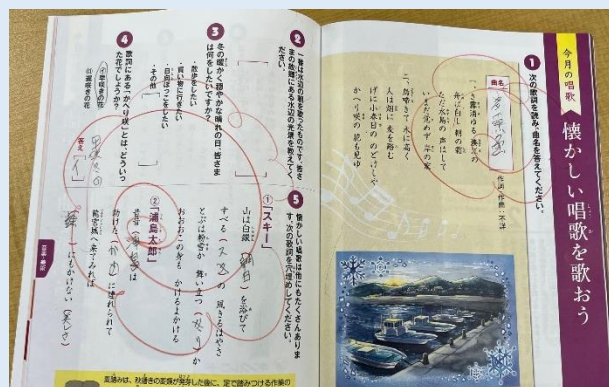 今月の唱歌
懐かしい唱歌を歌おう
1 次の歌詞を読み、曲名を答えてください。
曲名
冬景色
作詞・作曲:不詳
一、さ霧消ゆる 湊江の
舟に白し 朝の霜
ただ水鳥の 声はして
いまだ覚めず 岸の家
二、烏啼きて 木に高く
人は畑に 麦を踏む
げに小春日の のどけしや
かへり咲の 花も見ゆ
2 一番は水辺の朝を歌ったものです。皆さまの故郷にある水辺の光景を教えてください。
3 冬の暖かく穏やかな晴れの日、皆さまは何をしたいですか?
・散歩をしたい
・買い物に行きたい
・日向ぼっこをしたい
・その他
4 歌詞にある「かへり咲」とは、どういった花でしょうか?
㋑早咲きの花
㋺遅咲きの花
答え
5 懐かしい唱歌は他にもたくさんあります。次の歌詞を穴埋めしてください。
①「スキー」
山は白銀(朝日)を浴びて
すべる(スキー)の 風きるはやさ
とぶは粉雪か 舞い立つ(霧)か
おおおこの身も かけるよかける
②「浦島太郎」
昔昔(浦島)は
助けた(かめ)に連れられて
龍宮城へ来てみれば
()にもかけない(美しさ)
麦踏みは、秋蒔きの麦類が発芽した後に、足で踏みつける作業の